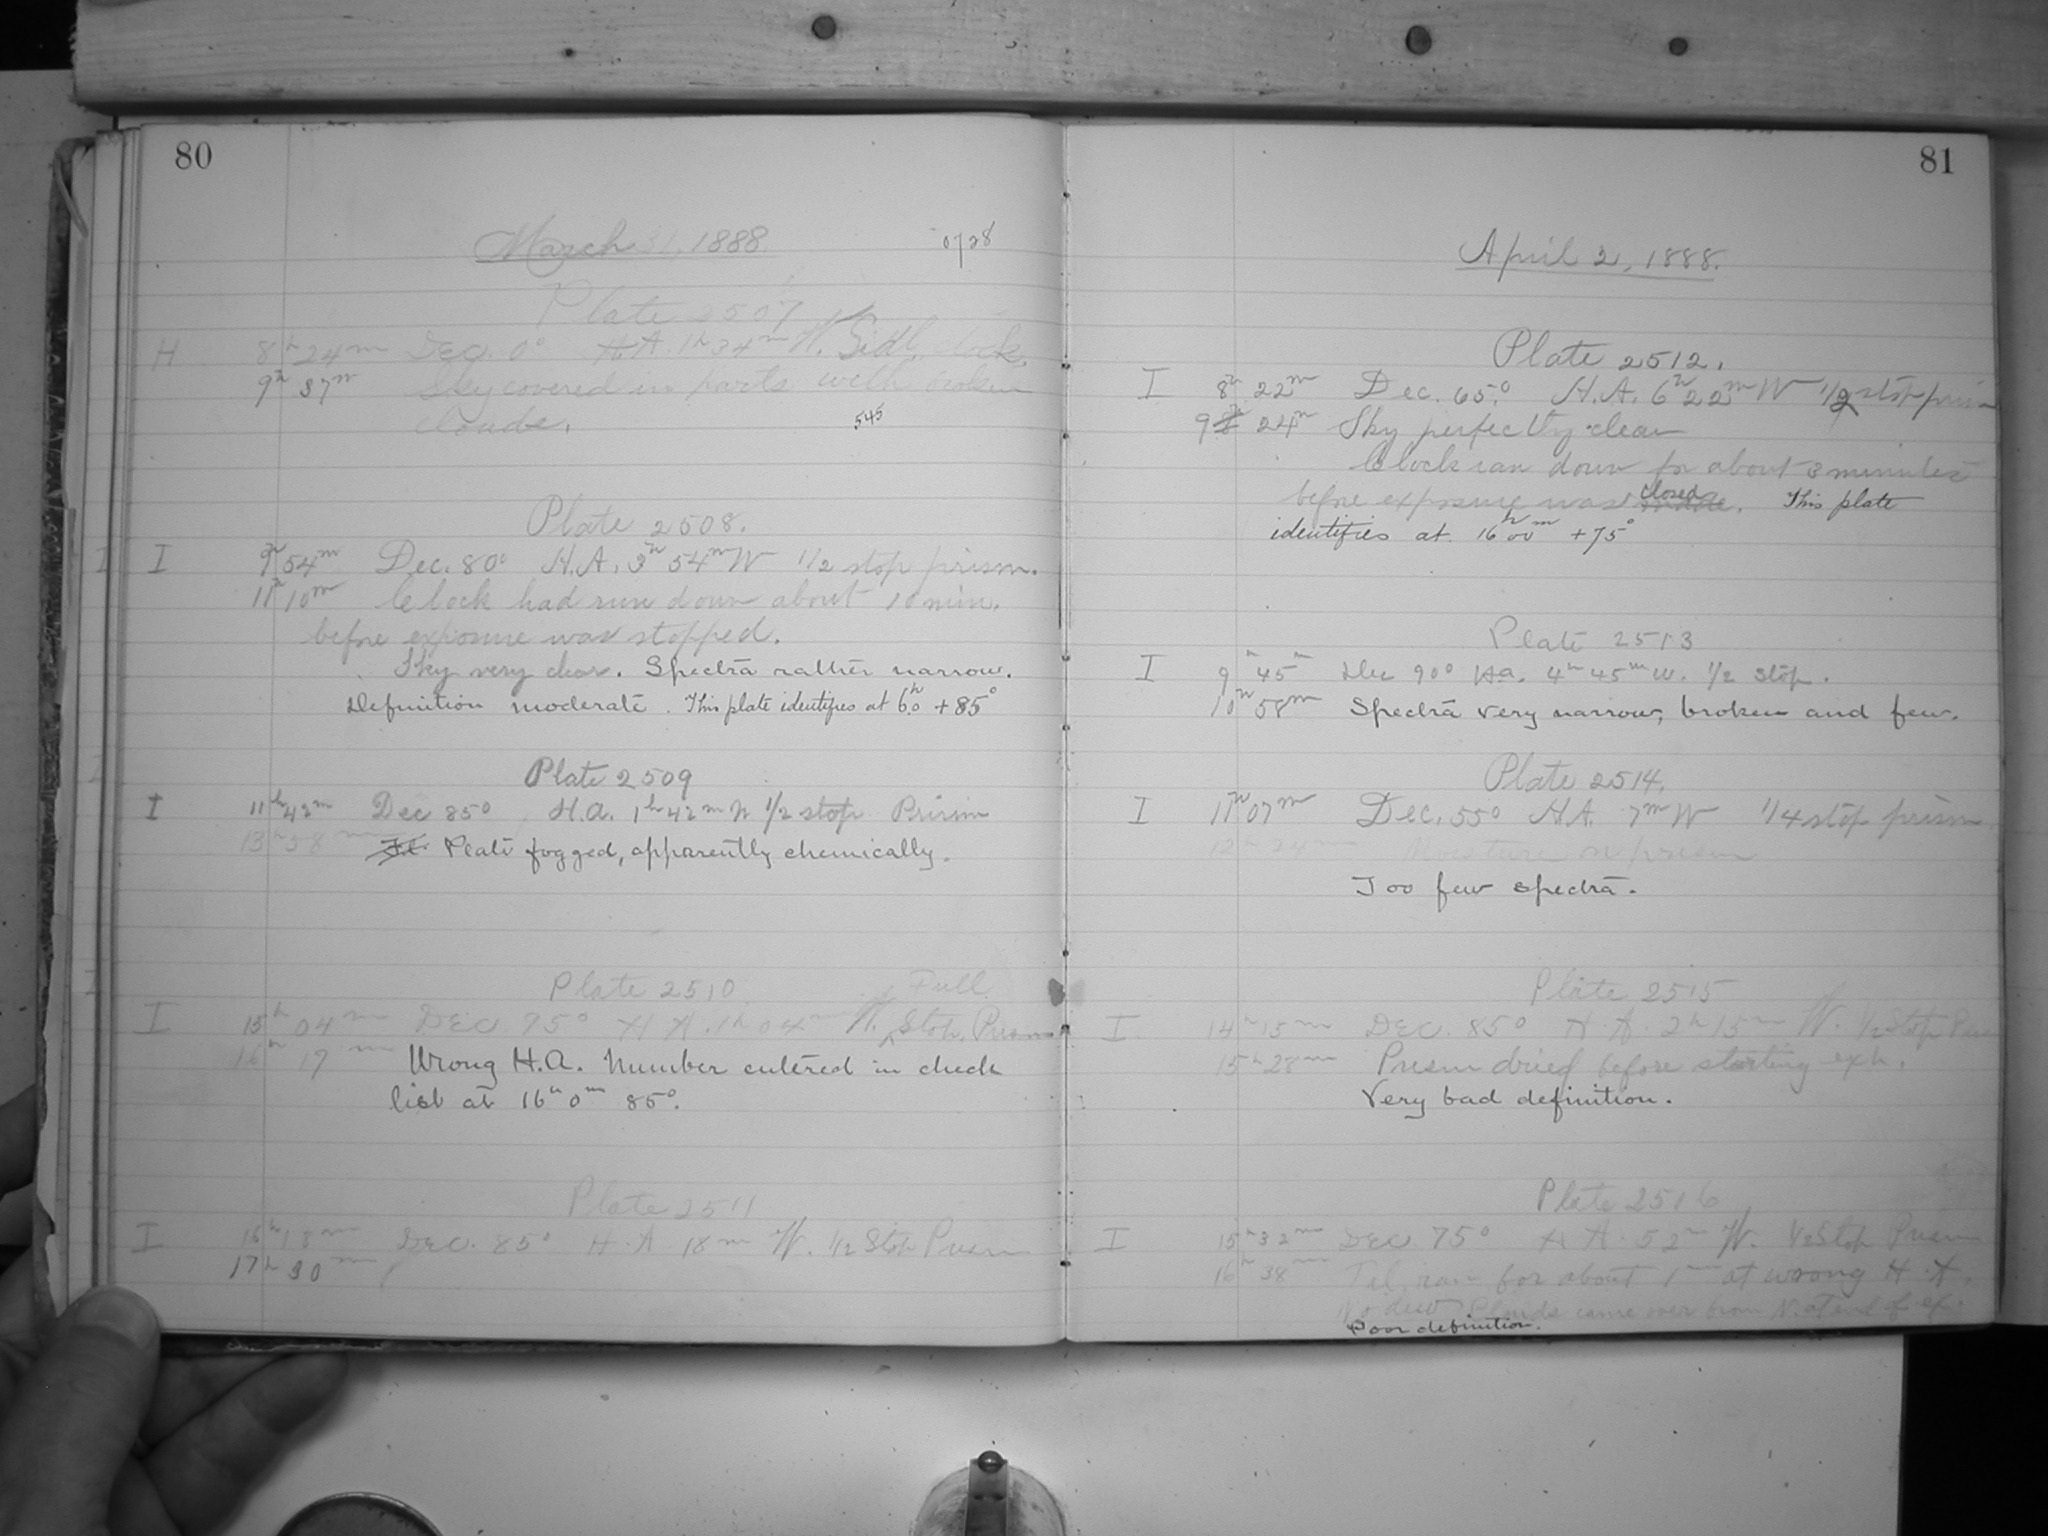 80
March 31, 1888
0728
Plate 2507
H 8h 24m Dec. 0° H.A. 1h 34m W. Sidl. clock.
9h 37m Sky covered in parts with broken
clouds.
545
Plate 2508.
I I 9h 54m Dec. 80° H.A. 3h 54m W 1/2 stop prism.
11h 10m Clock had run down about 10 min.
before exposure was stopped.
Sky very clear. Spectra rather narrow.
Definition moderate. This plate identifies at 6h.0 +85°
Plate 2509
I 11h 42m Dec 85° H.A. 1h 42m W 1/2 stop Prism
13h 58m Plate fogged, apparently chemically.
Plate 2510 Full
I 15h 04m Dec. 75° H.A. 1h 04m W. Stop, Prism
16h 17m Wrong H.A. Number entered in check
list at 16h 0m 85°.
Plate 2511
I 16h 18m Dec. 85° H.A. 18m W. 1/2 Stop Prism
17h 30m
81
April 2, 1888.
Plate 2512.
I 8h 22m Dec. 65° H.A. 6h 22m W 1/2 stop prism
9h 24m Sky perfectly clear
Clock ran down for about 3 minutes
before exposure was closed. This plate
identifies at 16h 00m +75°
Plate 2513
I 9h 45m Dec 90° H.a. 4h 45m W. 1/2 stop.
10h 58m Spectra very narrow, broken and few.
Plate 2514.
I 11h 07m Dec. 55° H.A. 7m W 1/4 stop prism
12h 24m Moisture on prism
Too few spectra.
Plate 2515
I 14h 15m Dec. 85° H.A. 2h 15m W. 1/2 Stop Prism
15h 28m Prism dried before starting exp.
Very bad definition.
Plate 2516
I 15h 32m Dec 75° H.A. 52m W. 1/2 Stop Prism
16h 38m Tel. ran for about 1m at wrong H.A.
No dew Clouds came over from N. at end of ex.
Poor definition.